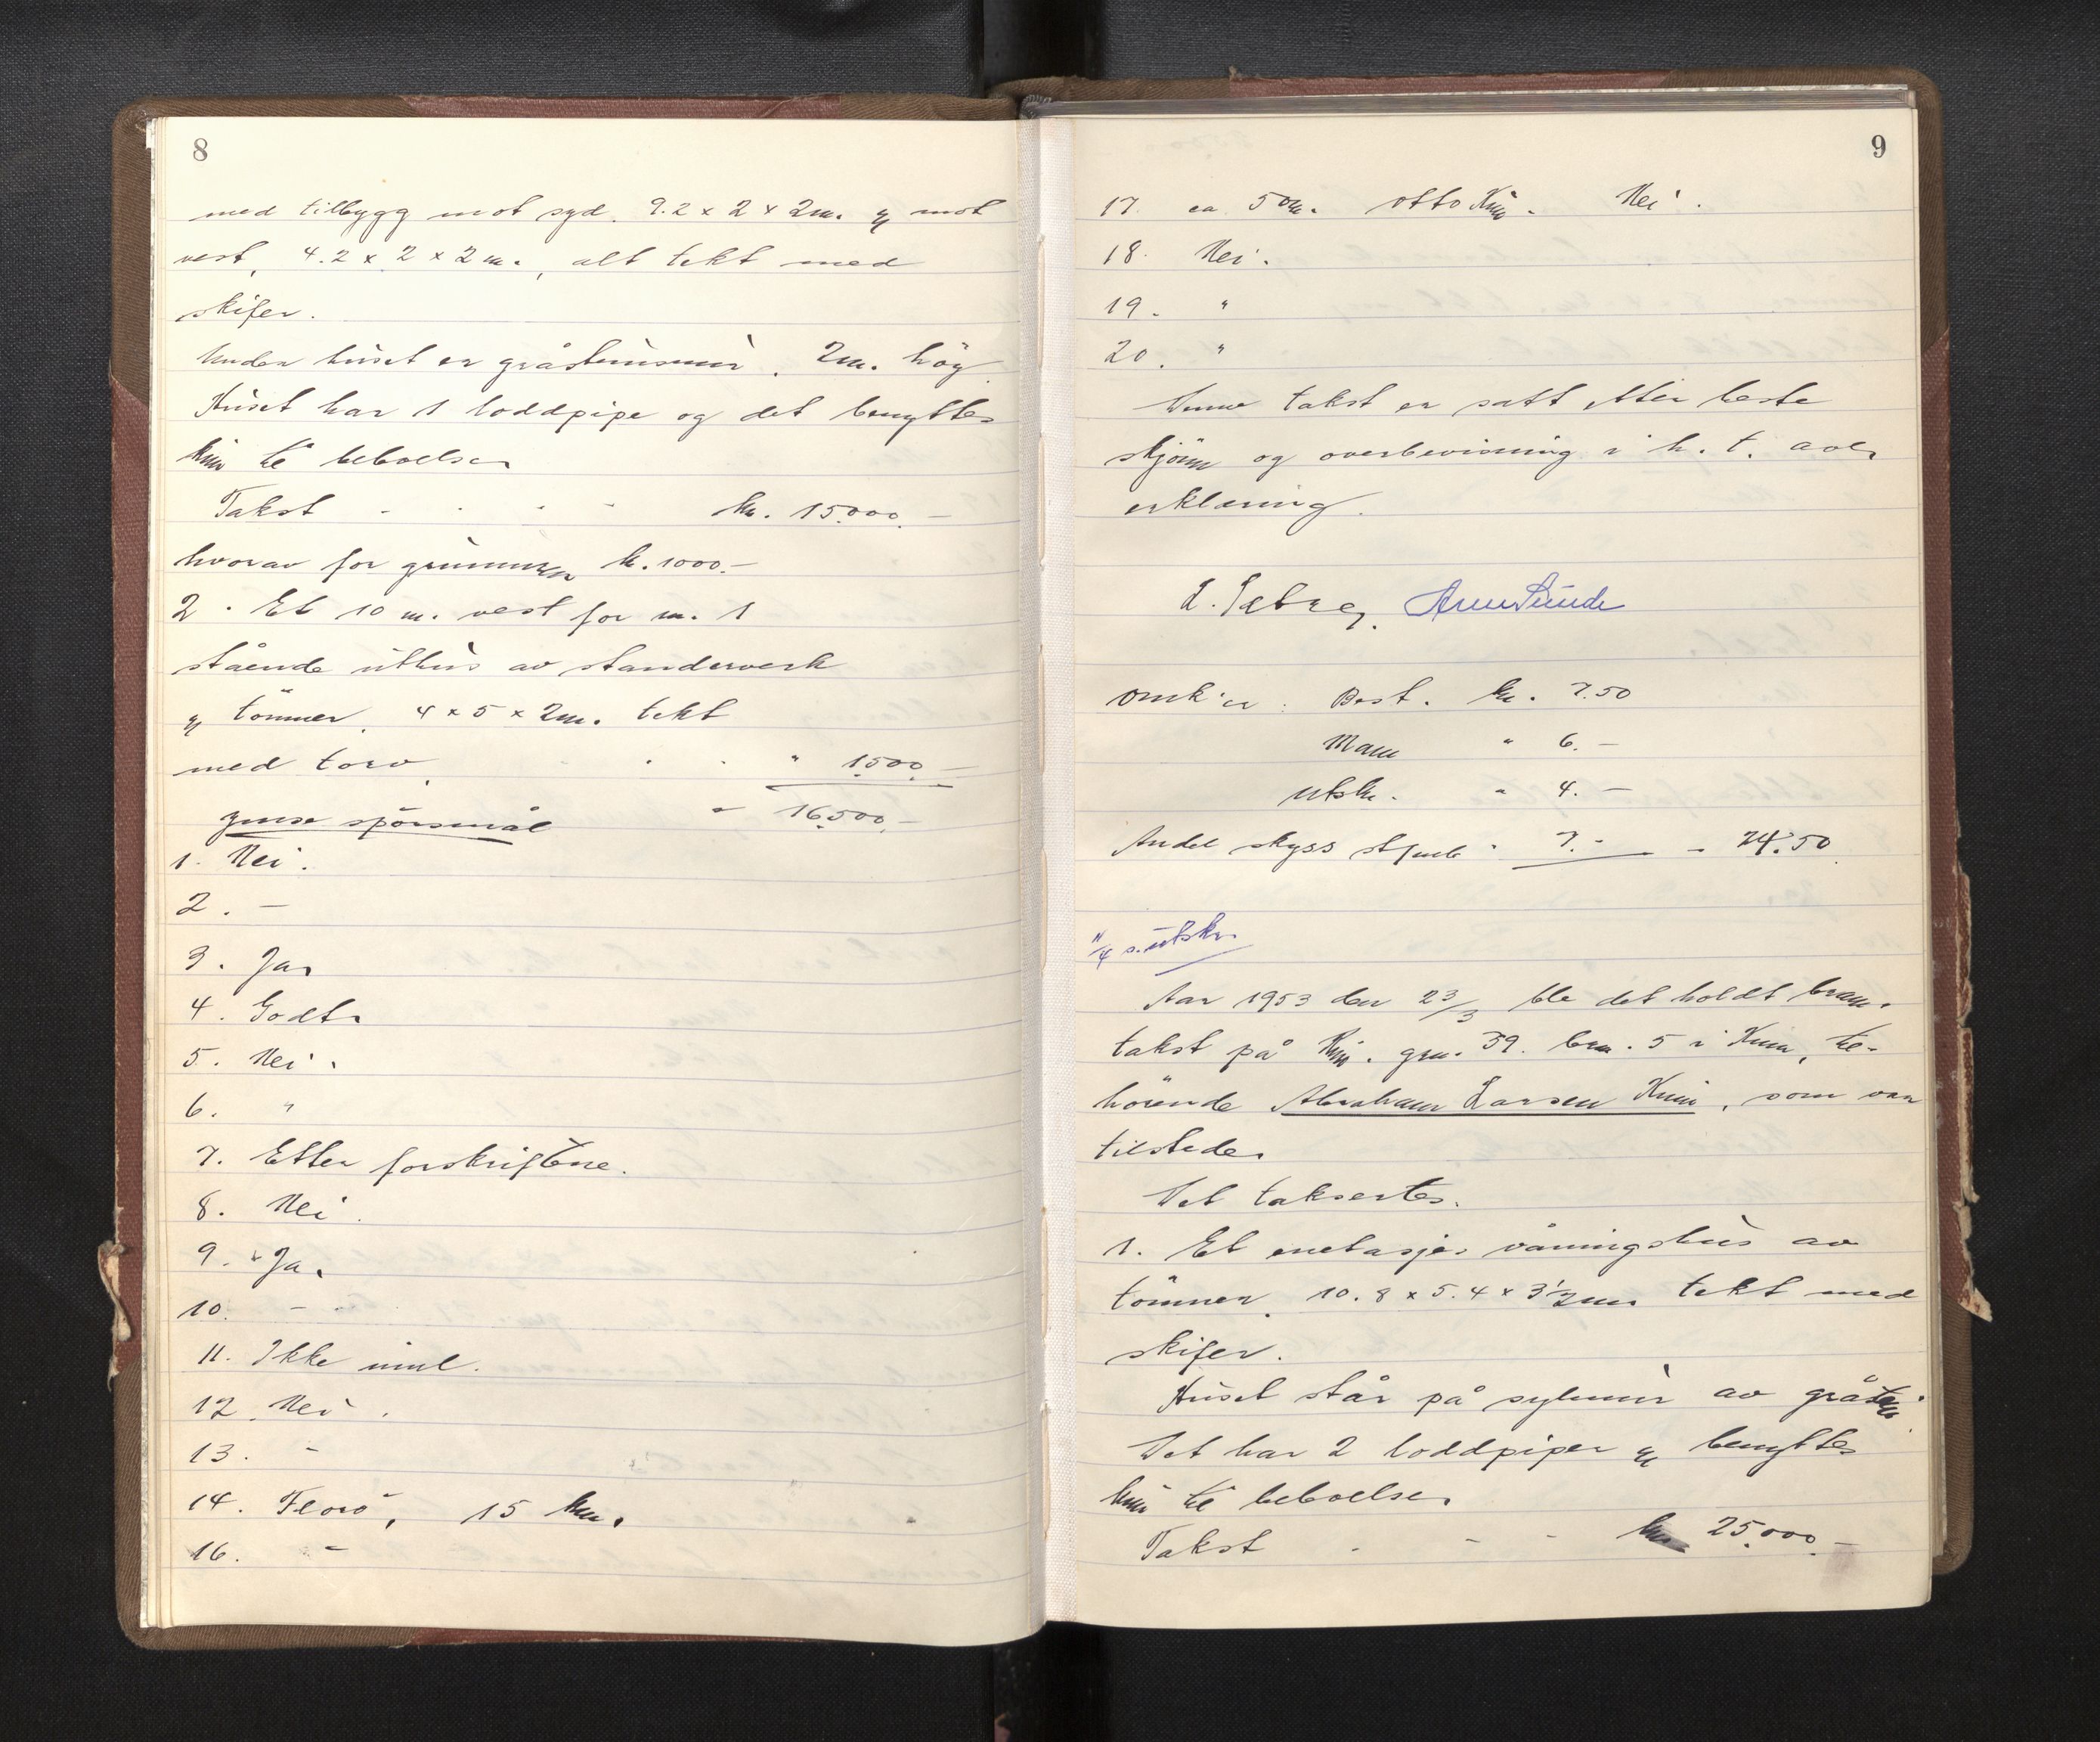 8
med tilbygg mot syd. 9.2 x 2 x 2m. og mot
vest, 4.2 x 2 x 2 m., alt tekt med
skifer.
Under huset er gråsteinsmur, 2m. høg.
Huset har 1 loddpipe og det benyttes
kun til beboelse.
Takst - - - - kr. 15.000.-
hvorav for grunnmuren kr. 1000.-
2. Et 10 m. vest for nr. 1
stående uthus av standerverk
og tömmer, 4 x 5 x 2m. tekt
med torv. - - " 1500.-
" 16500.-
spörsmål
1. Nei.
2. -
3. Ja.
4. Godt.
5. Nei.
6. "
7. Etter forskriftene.
8. Nei.
9. Ja.
10. -
11. Ikke innl.
12. Nei.
13. -
14. Florö, 15 km.
16. -
9
17. ca 50m. Otto Kinn. Nei.
18. Nei.
19. "
20. "
Denne takst er satt etter beste
skjönn og overbevisning i h. t. avl.
erklæring.
Arne Sunde
Omk.er: Best. kr. 7.50
Mann " 6.-
Utskr. " 4.-
Andel skyss " 7.- - 24.50
11/4 s. utskr.
Aar 1953 den 23/3 ble det holdt brann-
takst på Kinn. gnr. 39. bnr. 5 i Kinn, til-
hörende Abraham Larsen Kinn, som var
tilstede.
Det taksertes.
1. Et enetasjes våningshus av
tömmer, 10.8 x 5.4 x 3 1/2 m. tekt med
skifer.
Huset står på sylmur av gråstein.
Det har 2 loddpiper og benyttes
kun til beboelse.
Takst - - - kr. 25.000.-